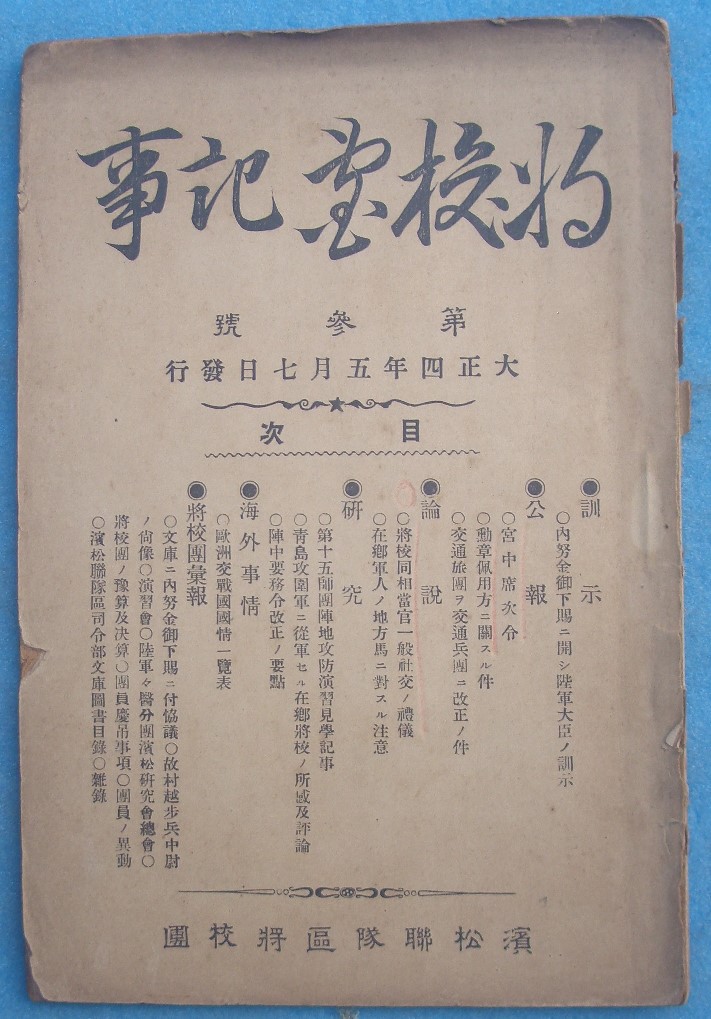 將校記事
第參號
大正四年五月七日發行
目次
◉訓示
○內努金御下賜ニ開シ陸軍大臣ノ訓示
◉公報
○宮中席次令
○勳章佩用方ニ關スル件
○交通旅團ヲ交通兵團ニ改正ノ件
◉論說
○將校同相當官一般社交ノ禮儀
○在鄕軍人ノ地方馬ニ對スル注意
◉研究
○第十五師團陣地攻防演習見學記事
○靑島攻圍軍ニ從軍セル在鄕將校ノ所感及評論
○陣中要務令改正ノ要點
◉海外事情
○歐洲交戰國國情一覽表
◉將校團彙報
○文庫ニ內努金御下賜ニ付協議○故村越步兵中尉
ノ尙像○演習會○陸軍々醫分團濱松硏究會總會○
將校團ノ豫算及決算○團員慶吊事項○團員ノ異動
○濱松聯隊區司令部文庫圖書目錄○雜錄
濱松聯隊區將校團